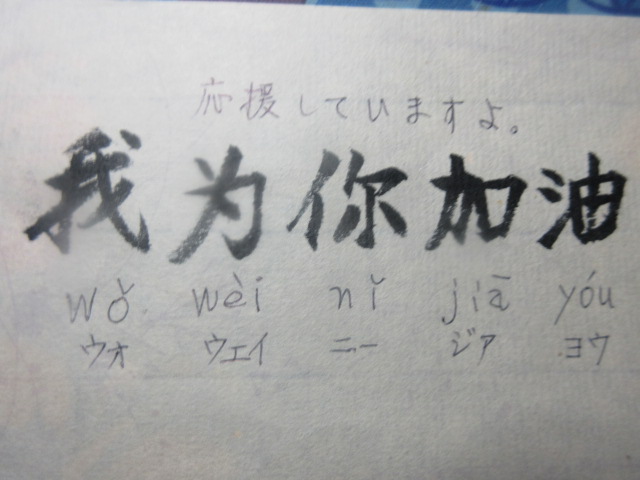 応援していますよ。
我为你加油
wǒ wèi nǐ jiā yóu
ウォ ウェイ ニー ジア ヨウ